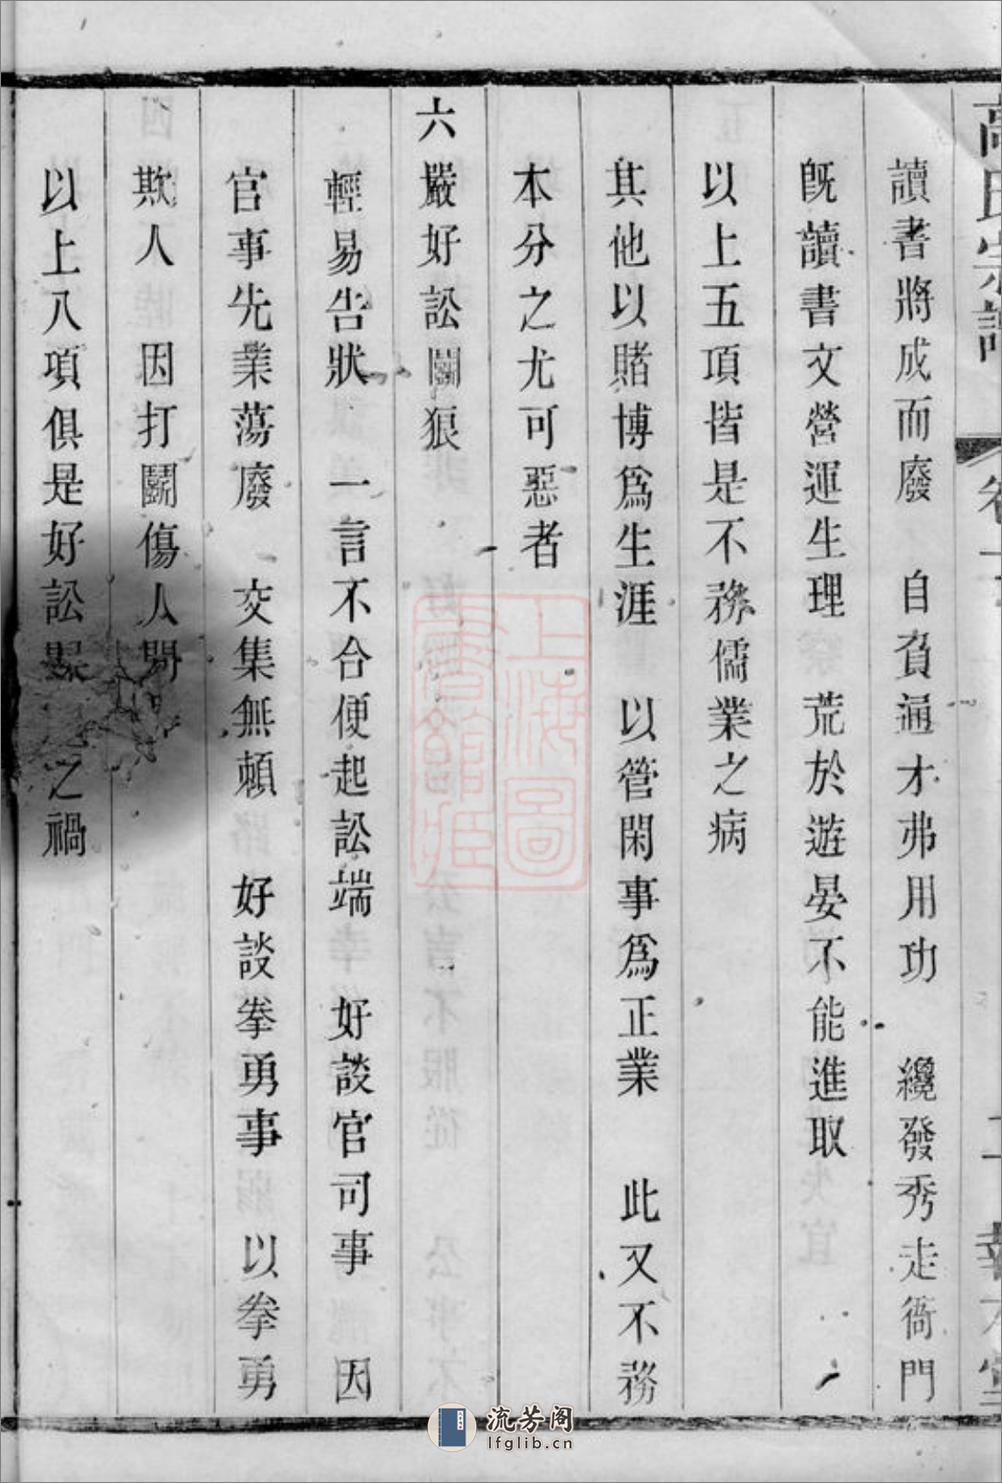 讀書將成而廢　自負通才弗用功　纔發秀走衙門
旣讀書文營運生理　荒於遊晏不能進取
以上五項皆是不務儒業之病
其他以賭博爲生涯　以管閑事爲正業　此又不務
本分之尤可惡者
六嚴好訟鬭狠
輕易告狀　一言不合便起訟端　好談官司事　因
官事先業蕩廢　交集無頼　好談拳勇事　以拳勇
欺人　因打鬭傷人
以上八項俱是好訟　之禍
上海圖書館藏
流芳阁
lfglib.cn